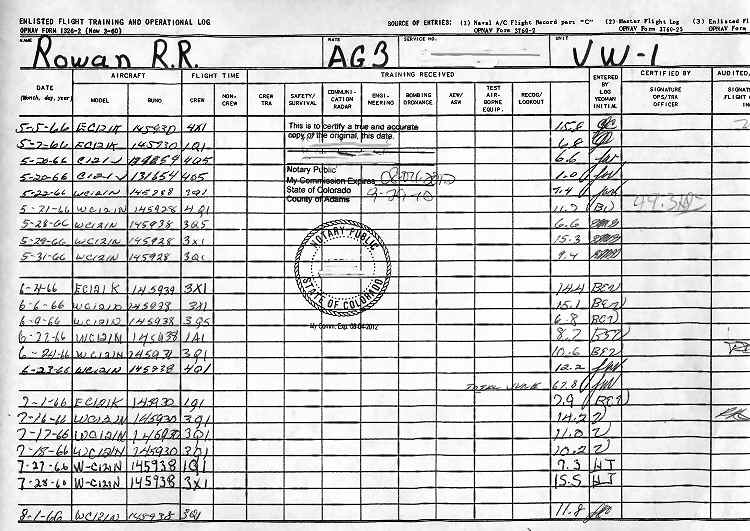 ENLISTED FLIGHT TRAINING AND OPERATIONAL LOG
OPNAV FORM 1326-2 (Nov 3-60)
SOURCE OF ENTRIES: (1) Naval A/C Flight Record part "C" (2) Master Flight Log (3) Enlisted F
OPNAV Form 3760-2 OPNAV Form 3760-25 OPNAV For
NAME RATE SERVICE NO. UNIT
Rowan R.R. AG3 VW-1
AIRCRAFT FLIGHT TIME TRAINING RECEIVED CERTIFIED BY AUDITED,
DATE (Month, day, year) MODEL BUNO. CREW NON-CREW CREW TRA SAFETY/SURVIVAL COMMUNI-CATION RADAR ENGI-NEERING BOMBING ORDNANCE AEW/ASW TEST AIR-BORNE EQUIP. RECOG/LOOKOUT ENTERED BY LOG YEOMAN INITIAL SIGNATURE OPS/TRA OFFICER SIGNAT FLIGHT IN
5-5-66 EC121K 145930 4X1 15.8
This is to certify a true and accurate
copy of the original, this date.
5-7-66 EC121K 145930 1Q1 6.8
5-20-66 C121J 4Q5 6.6
Notary Public
5-20-66 C121J 131654 4Q5 1.0
My Commission Expires
State of Colorado
5-22-66 WC121N 145938 3Q1 9.4
County of Adams 9-29-10
5-21-66 WC121N 145928 4Q1 11.7
5-28-66 WC121N 145938 3Q5 6.6
5-29-66 WC121N 145928 3X1 15.3
5-31-66 WC121N 145928 3Q1 9.4
NOTARY PUBLIC
STATE OF COLORADO
6-4-66 EC121K 145939 3X1 14.4
6-6-66 WC121N 145938 3X1 15.1
6-9-66 WC121N 145938 3Q5 6.8
My Comm. Exp. 08-04-2012
6-22-66 WC121N 145938 1A1 8.7
6-24-66 WC121N 145931 3Q1 10.6
6-23-66 WC121N 145938 4Q1 12.2
TOTAL JUNE 67.8
7-1-66 EC121K 145930 1Q1 7.9
7-16-66 WC121N 145930 3Q1 14.2
7-17-66 WC121N 145930 3Q1 11.0
7-18-66 WC121N 145930 3Q1 10.2
7-27-66 W-C121N 145938 1Q1 7.3 WT
7-28-60 W-C121N 145938 3X1 15.5 WT
8-1-66 WC121N 145938 3Q1 11.8